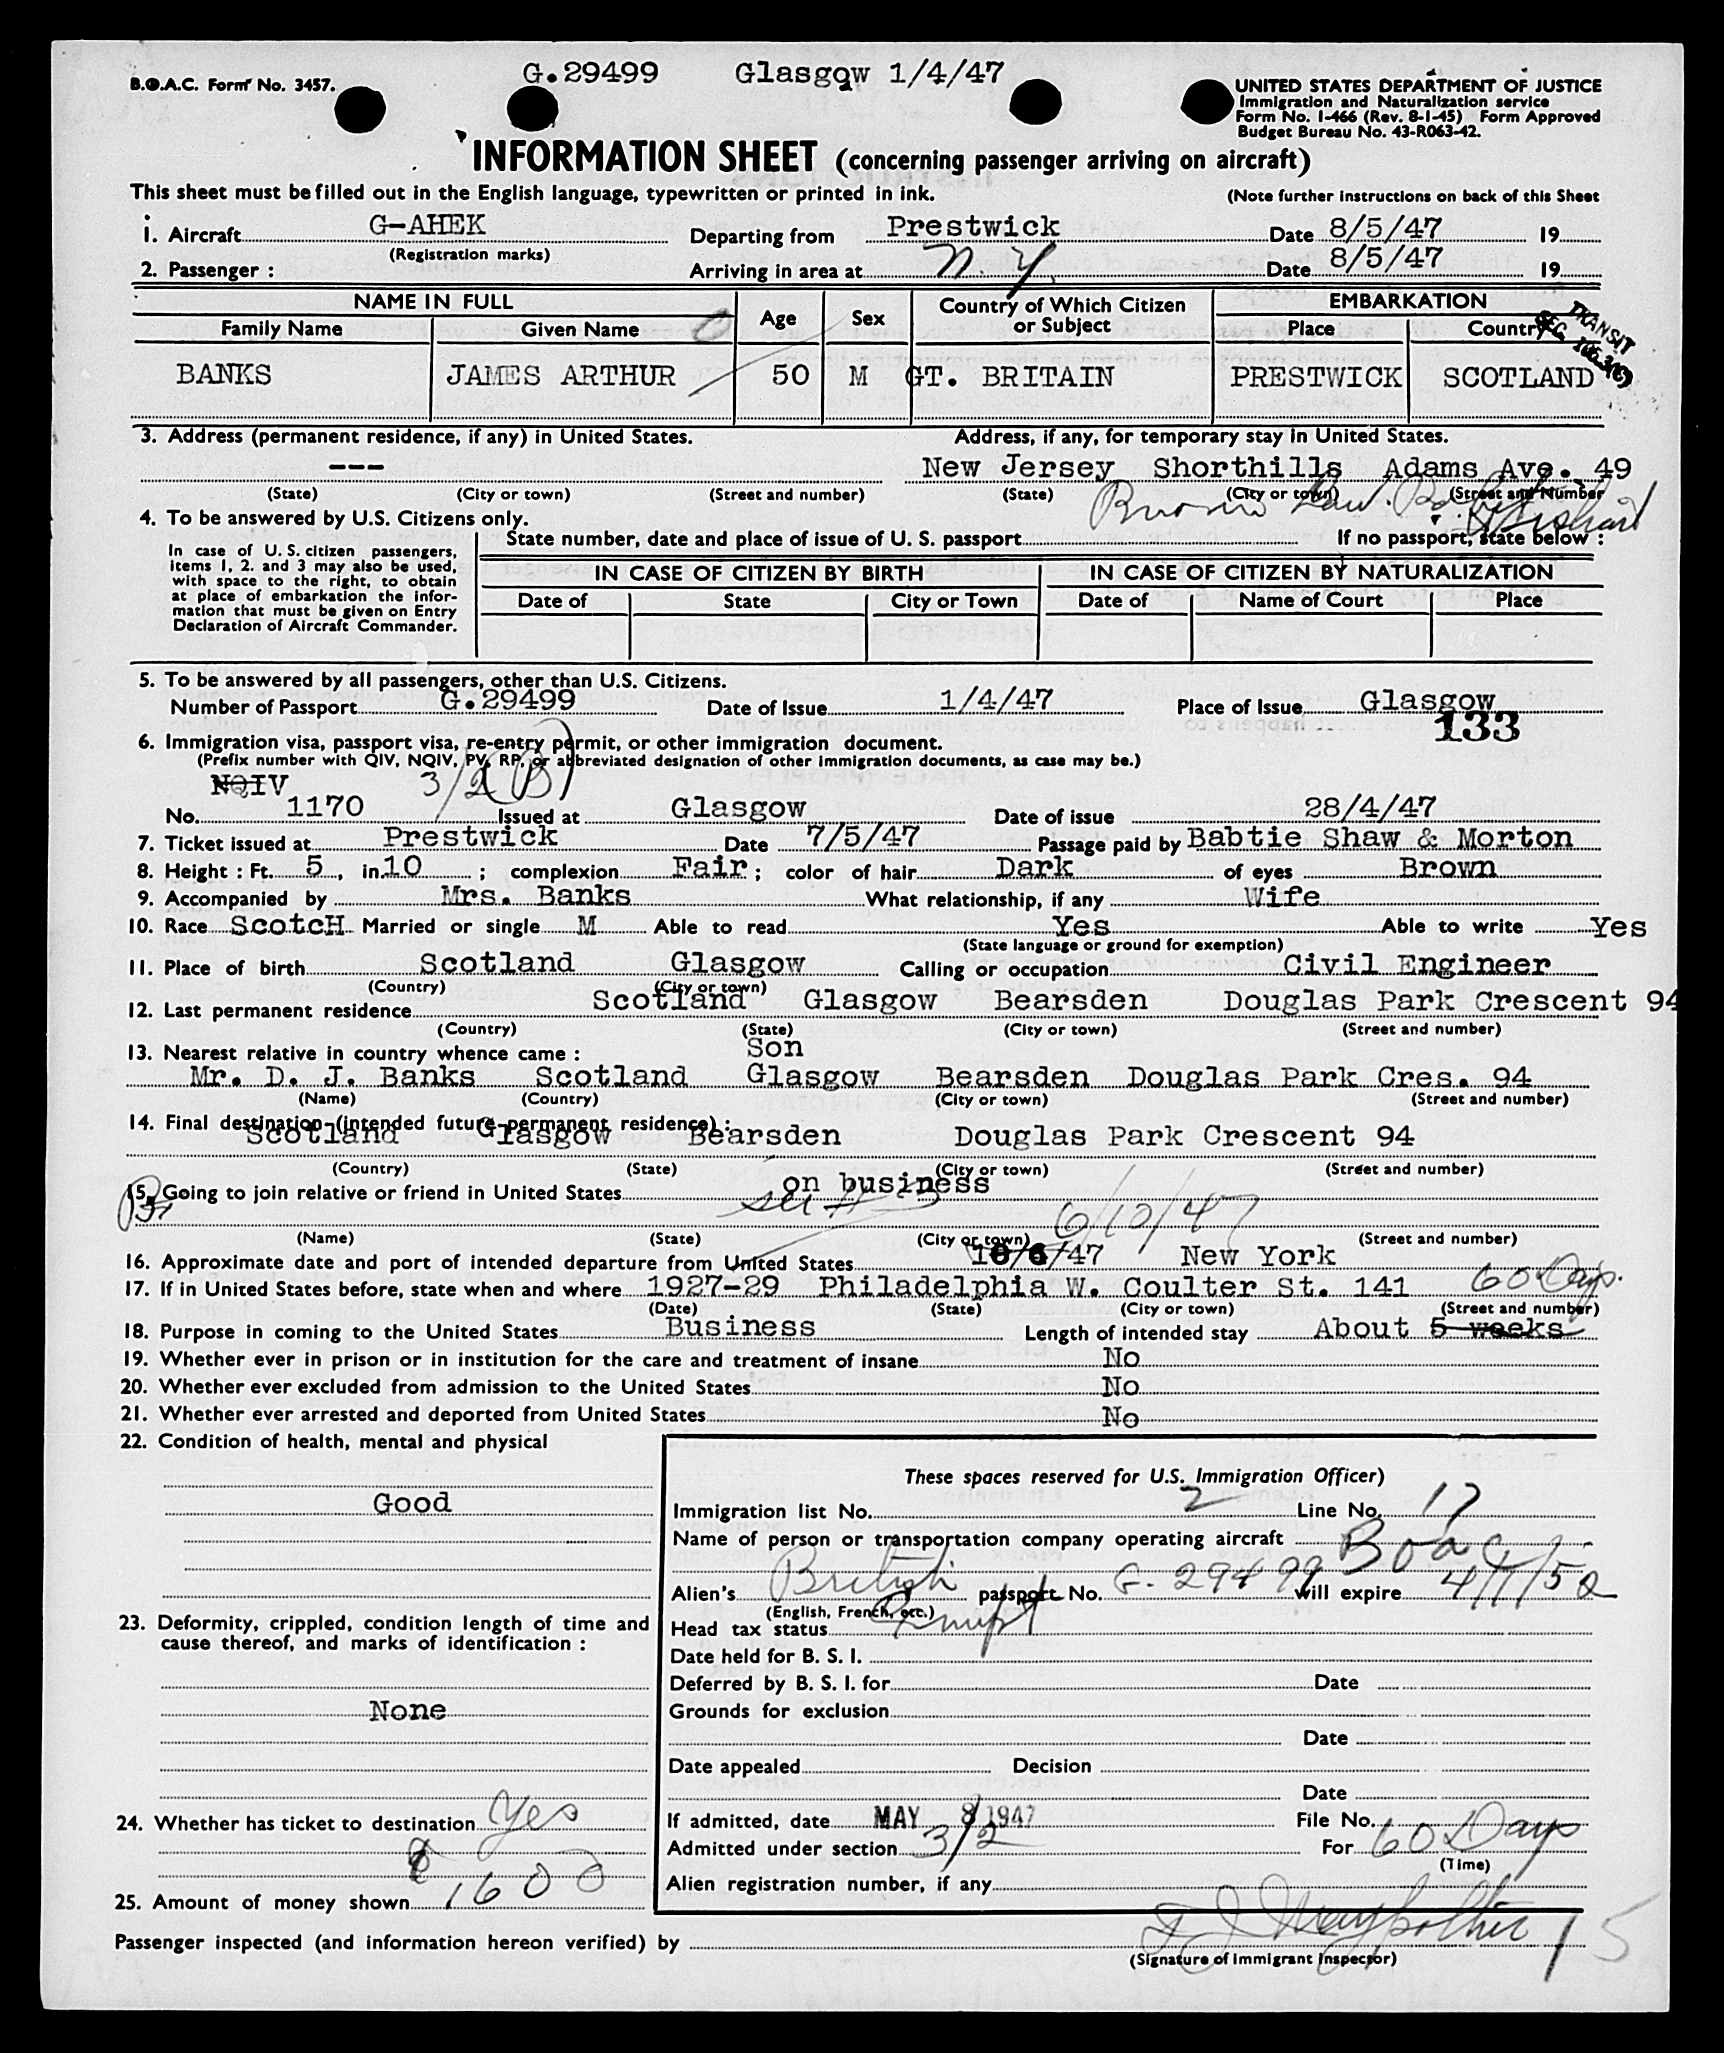 G.29499 Glasgow 1/4/47
B.O.A.C. Form No. 3457.
UNITED STATES DEPARTMENT OF JUSTICE
Immigration and Naturalization service
Form No. I-466 (Rev. 8-1-45) Form Approved
Budget Bureau No. 43-R063-42.
INFORMATION SHEET (concerning passenger arriving on aircraft)
This sheet must be filled out in the English language, typewritten or printed in ink. (Note further instructions on back of this Sheet
1. Aircraft G-AHEK Departing from Prestwick Date 8/5/47 19
(Registration marks)
2. Passenger : Arriving in area at N. Y. Date 8/5/47 19
NAME IN FULL Age Sex Country of Which Citizen or Subject EMBARKATION
Family Name Given Name Place Country
TRANSIT
BANKS JAMES ARTHUR 50 M GT. BRITAIN PRESTWICK SCOTLAND
3. Address (permanent residence, if any) in United States. Address, if any, for temporary stay in United States.
--- New Jersey Shorthills Adams Ave. 49
(State) (City or town) (Street and number) (State) (City or town) (Street and Number
4. To be answered by U.S. Citizens only.
State number, date and place of issue of U. S. passport If no passport, state below :
In case of U. S. citizen passengers,
items 1, 2. and 3 may also be used,
with space to the right, to obtain
at place of embarkation the infor-
mation that must be given on Entry
Declaration of Aircraft Commander.
IN CASE OF CITIZEN BY BIRTH IN CASE OF CITIZEN BY NATURALIZATION
Date of State City or Town Date of Name of Court Place
5. To be answered by all passengers, other than U.S. Citizens.
Number of Passport G.29499 Date of Issue 1/4/47 Place of Issue Glasgow
133
6. Immigration visa, passport visa, re-entry permit, or other immigration document.
(Prefix number with QIV, NQIV, PV, RP, or abbreviated designation of other immigration documents, as case may be.)
NQIV 3/2(B)
No. 1170 Issued at Glasgow Date of issue 28/4/47
7. Ticket issued at Prestwick Date 7/5/47 Passage paid by Babtie Shaw & Morton
8. Height : Ft. 5, in. 10 ; complexion Fair ; color of hair Dark of eyes Brown
9. Accompanied by Mrs. Banks What relationship, if any Wife
10. Race ScotcH Married or single M Able to read Yes Able to write Yes
(State language or ground for exemption)
11. Place of birth Scotland Glasgow Calling or occupation Civil Engineer
(Country) (City or town)
12. Last permanent residence Scotland Glasgow Bearsden Douglas Park Crescent 94
(Country) (State) (City or town) (Street and number)
13. Nearest relative in country whence came : Son
Mr. D. J. Banks Scotland Glasgow Bearsden Douglas Park Cres. 94
(Name) (Country) (City or town) (Street and number)
14. Final destination (intended future permanent residence) :
Scotland Glasgow Bearsden Douglas Park Crescent 94
(Country) (State) (City or town) (Street and number)
15. Going to join relative or friend in United States on business
see # 3 6/10/47
(Name) (State) (City or town) (Street and number)
16. Approximate date and port of intended departure from United States 10/6/47 New York
17. If in United States before, state when and where 1927-29 Philadelphia W. Coulter St. 141 60 Days.
(Date) (State) (City or town) (Street and number)
18. Purpose in coming to the United States Business Length of intended stay About 5 weeks
19. Whether ever in prison or in institution for the care and treatment of insane No
20. Whether ever excluded from admission to the United States No
21. Whether ever arrested and deported from United States No
22. Condition of health, mental and physical
Good
23. Deformity, crippled, condition length of time and
cause thereof, and marks of identification :
None
24. Whether has ticket to destination Yes
25. Amount of money shown 1600
These spaces reserved for U.S. Immigration Officer)
Immigration list No. 2 Line No. 17
Name of person or transportation company operating aircraft BOAC
Alien's British passport No. G. 29499 will expire 4/1/52
(English, French, etc.)
Head tax status Exempt
Date held for B. S. I.
Deferred by B. S. I. for Date
Grounds for exclusion
Date
Date appealed Decision
Date
If admitted, date MAY 8 1947 File No.
Admitted under section 3/2 For 60 Days
(Time)
Alien registration number, if any
Passenger inspected (and information hereon verified) by 15
(Signature of Immigrant Inspector)